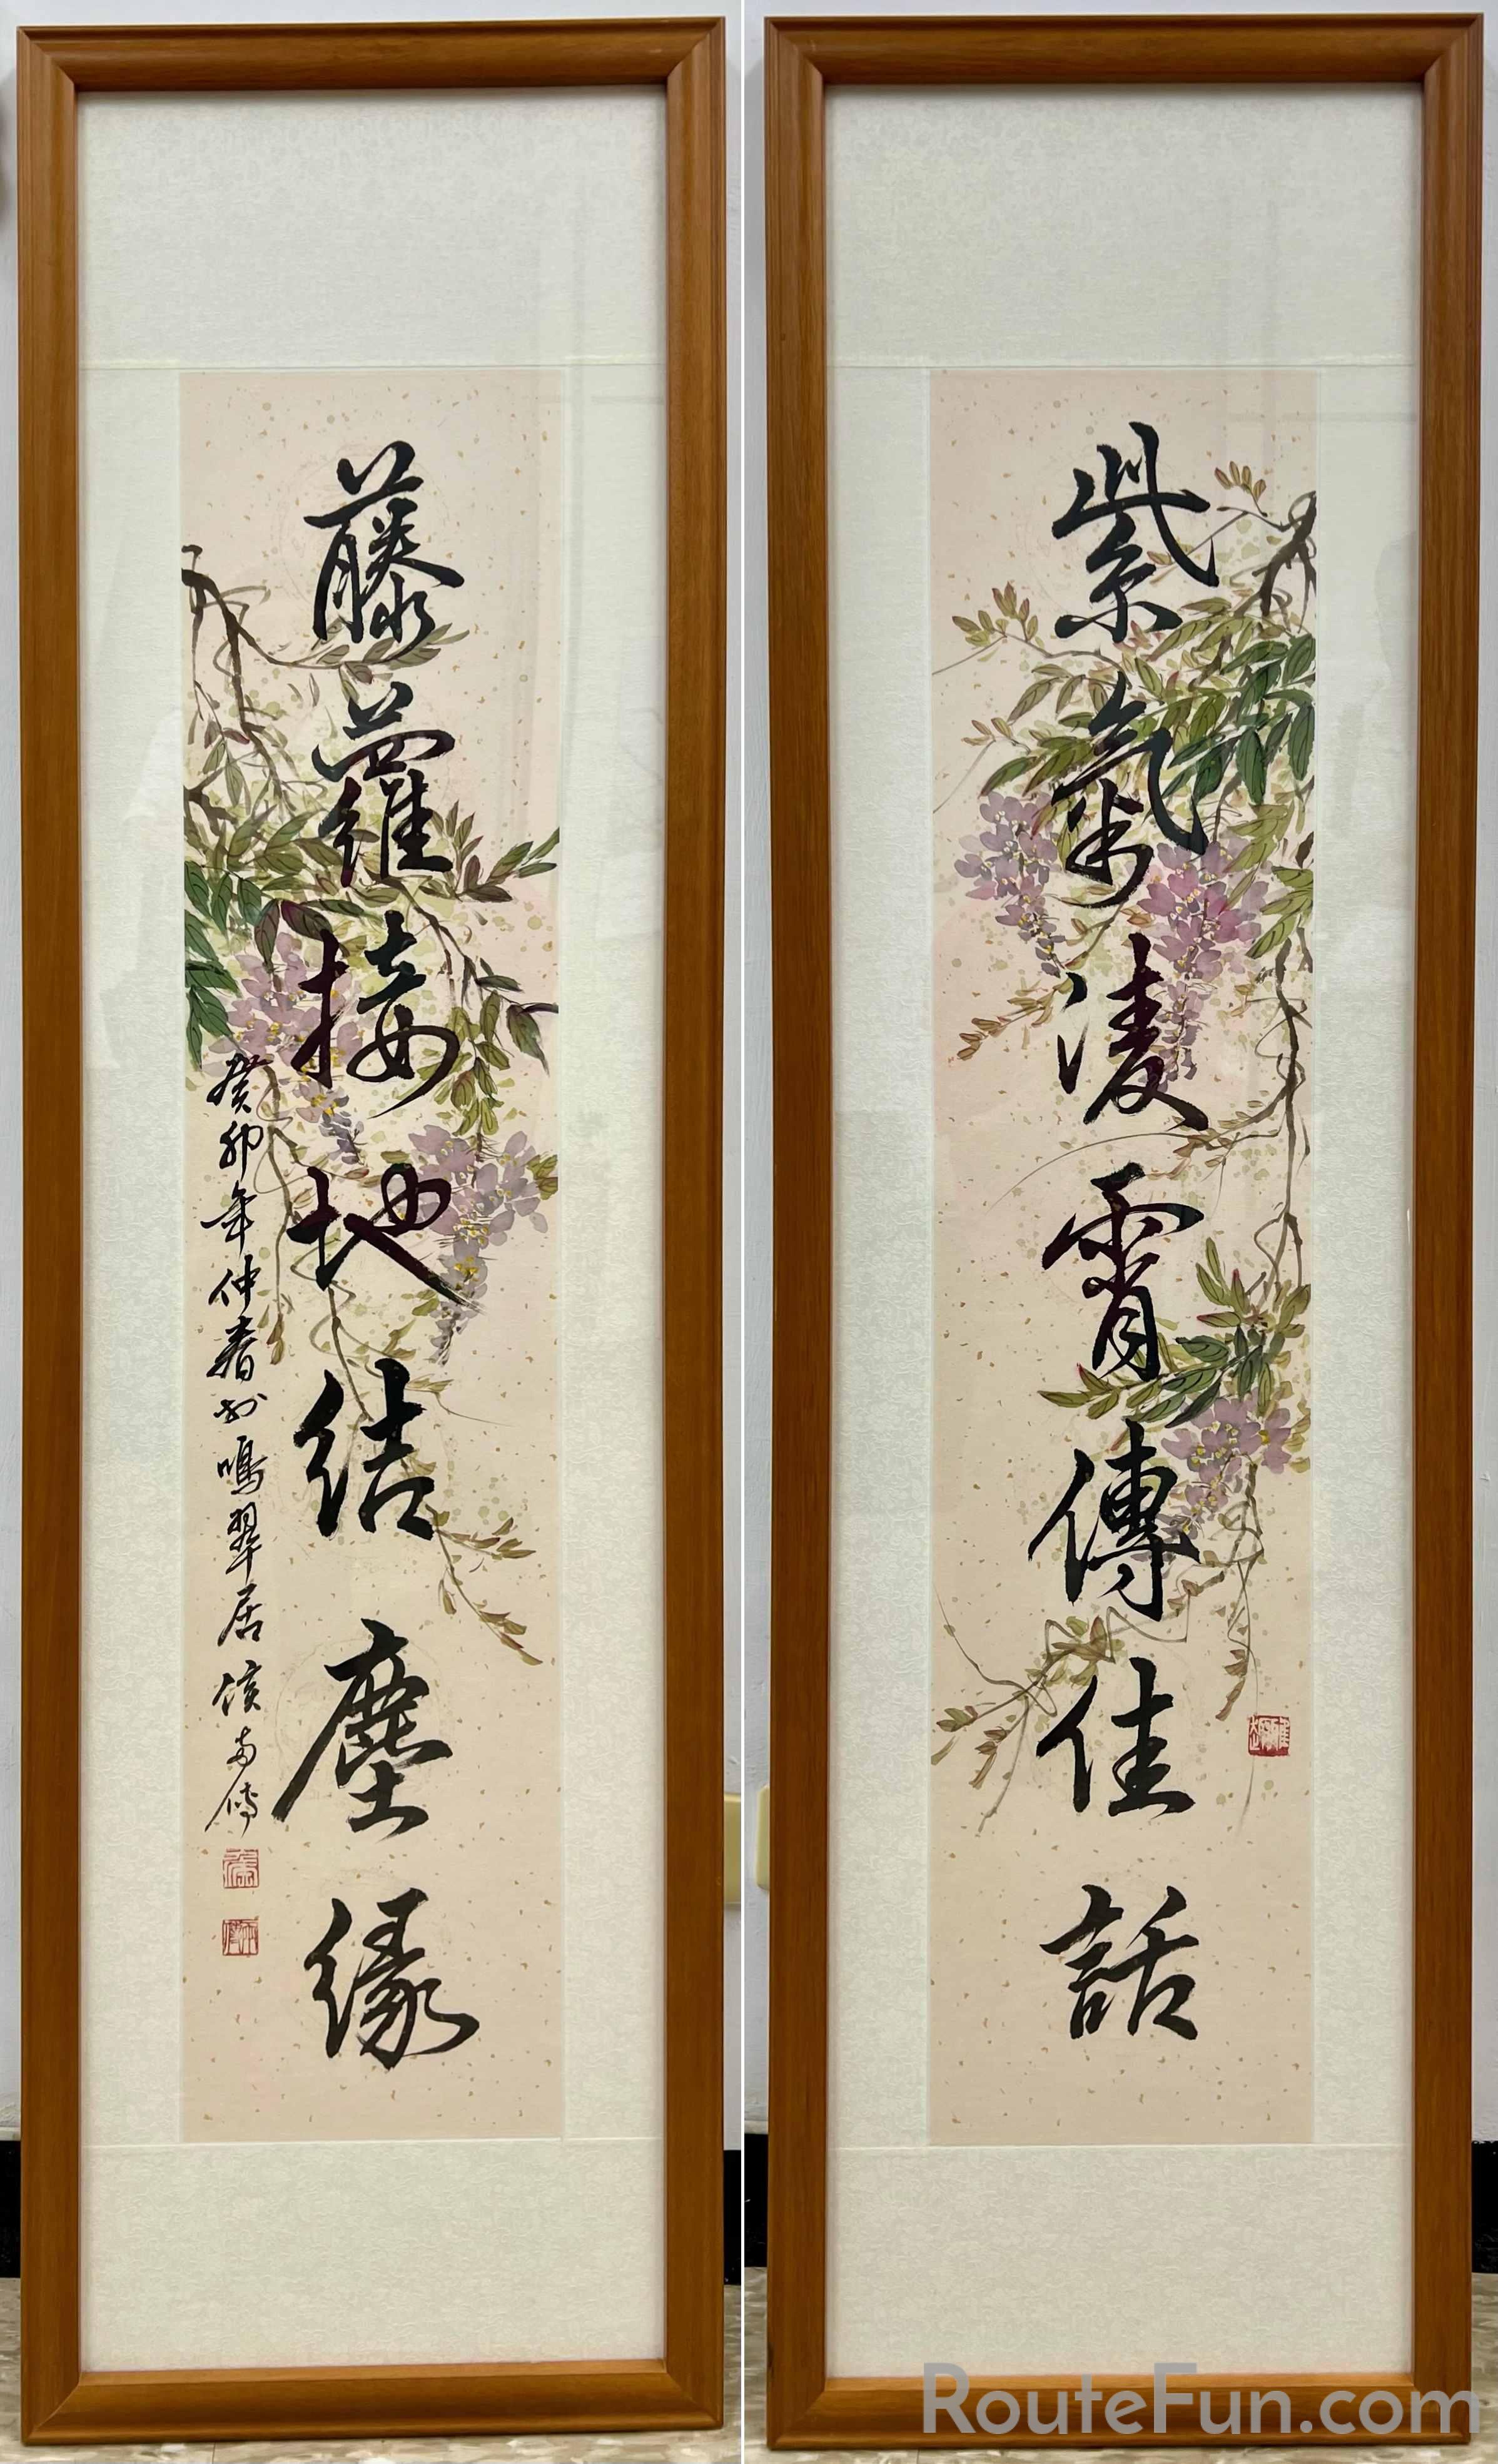 紫氣凌霄傳佳話
藤蘿接地結塵緣
癸卯年仲春於鳴翠居 侯南傳
RouteFun.com